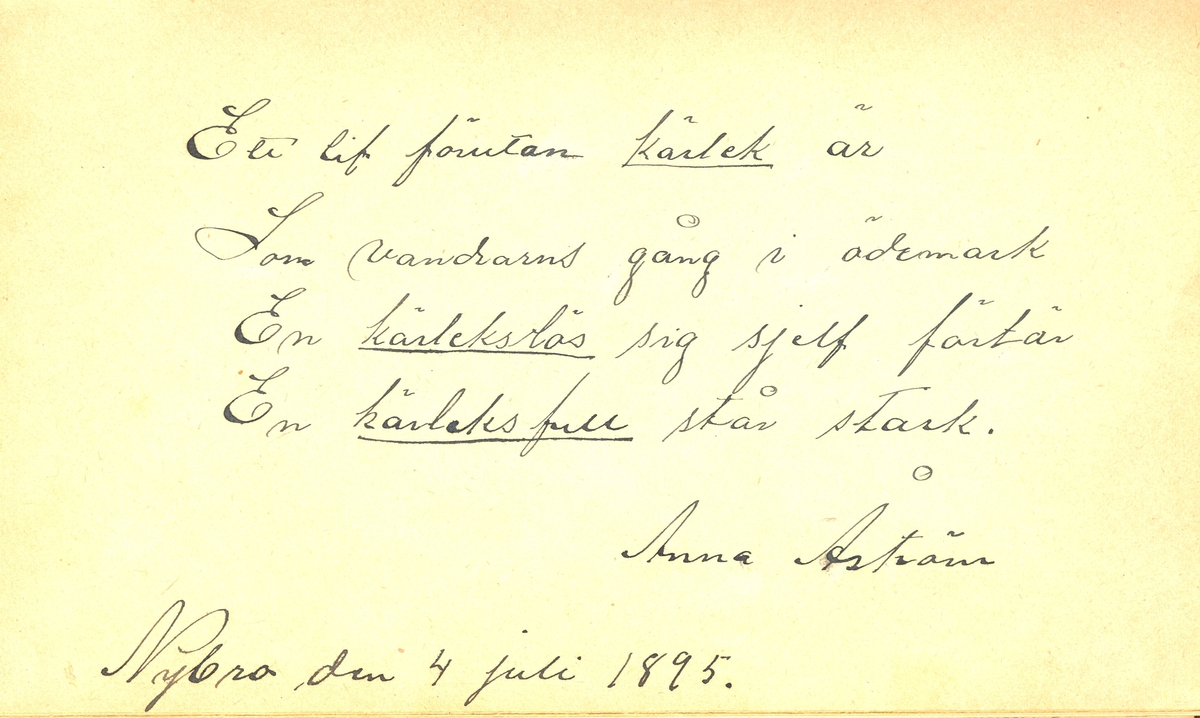 Ett lif förutan kärlek är
Som vandrarns gång i ödemark
En kärlekslös sig sjelf förtär
En kärleksfull står stark.
Anna Åström
Nybro den 4 juli 1895.